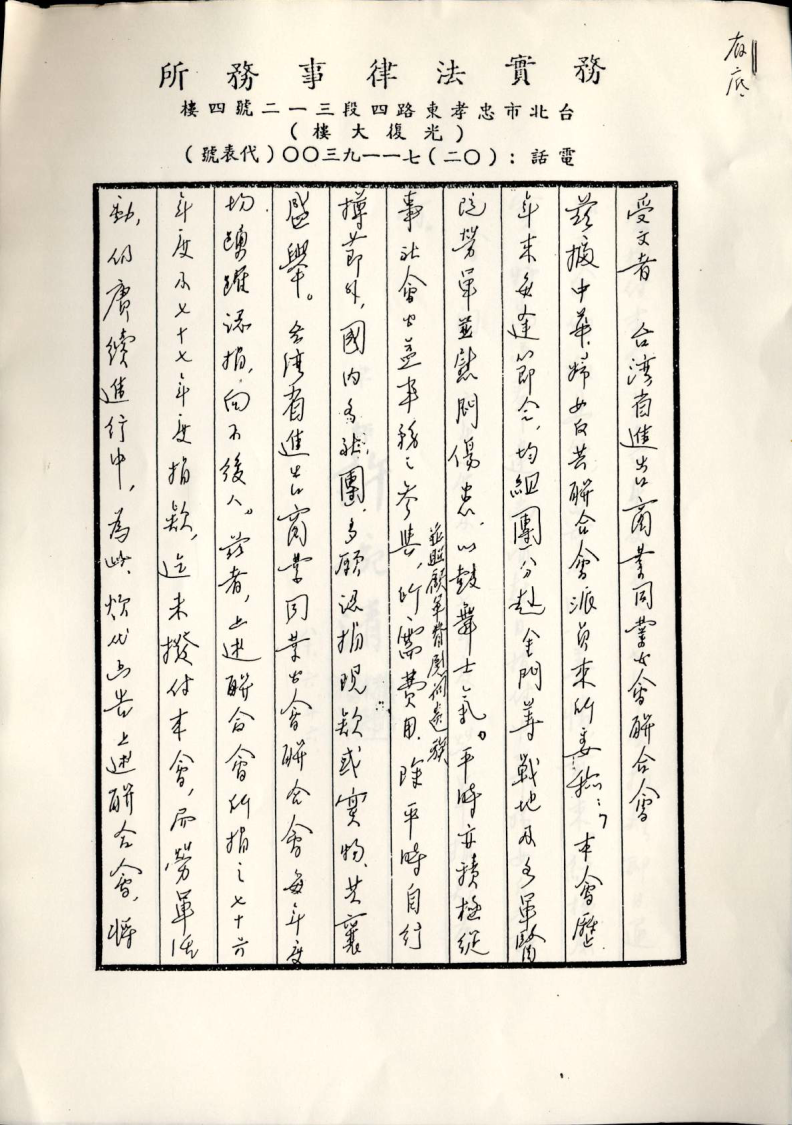 務實法律事務所
台北市忠孝東路四段三一二號四樓
(光復大樓)
電話：(〇二)七一一九三〇〇(代表號)
存底
受文者 台湾省進出口商業同業公會聯合會
茲據中華婦女反共聯合會派員來所委稱：「本會歷
年來每逢節令，均組團分赴金門等戰地及各軍醫
院勞軍並慰問傷患，以鼓舞士氣。平時亦積極從
並照顧軍眷慰問遺族
事社會公益事務之參與，所需費用，除平時自行
撙節外，國內各社團，多願認捐現款或實物，共襄
盛舉。台湾省進出口商業同業公會聯合會每年度
均踴躍認捐，向不後人。茲者，上述聯合會所捐之七十六
年度及七十七年度捐款，迄未撥付本會，而勞軍活
動，仍賡續進行中，為此，煩代函告上述聯合會，將